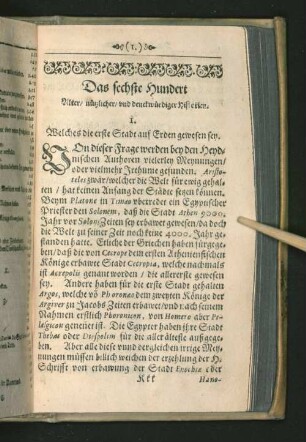 (1.)
Das sechste Hundert
Alter/ nützlicher/ vnd denckwürdiger Historien.
I.
Welches die erste Stadt auf Erden gewesen sey.
VOn dieser Frage werden bey den Heyd-
nischen Authoren vielerley Meynungen/
oder vielmehr Irthume gefunden. Aristo-
teles zwar/ welcher die Welt für ewig gehal-
ten/ hat keinen Anfang der Städte setzen können.
Beym Platone in Timæo vberredet ein Egyptischer
Priester den Solonem, daß die Stadt Athen 9000.
Jahr vor Solons Zeiten sey erbawet gewesen/ da doch
die Welt zu seiner Zeit noch keine 4000. Jahr ge-
standen hatte. Etliche der Griechen haben fürgege-
ben/ daß die von Cecrope dem ersten Athenienstischen
Könige erbawete Stadt Cecropia, welche nachmals
ist Acropolis genant worden/ die allererste gewesen
sey. Andere haben für die erste Stadt gehalten
Argos, welche vō Phoroneo dem zweyten Könige der
Argiver zu Jacobs Zeiten erbawet/ vnd nach seinem
Nahmen erstlich Phoronicum, von Homero aber Pe-
lasgicum genennet ist. Die Egypter haben ihre Stadt
Thebas oder Diospolim für die alleräl teste aufgege-
ben. Aber alle diese vnd dergleichen irrige Mey-
nungen müssen billich weichen der erzehlung der H.
Schrifft von erbawung der Stadt Enochia der
Ktt Hano-